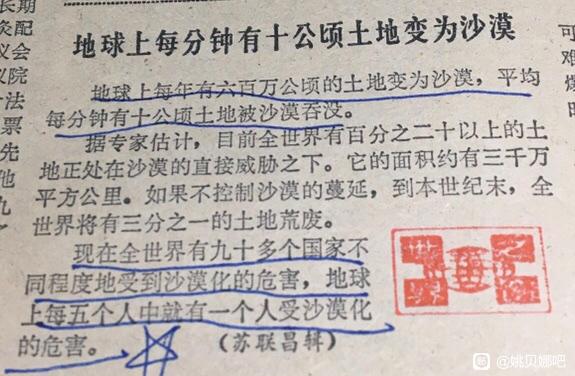 长期
灸配
议会
议院
法
票
先
他
九
地球上每分钟有十公顷土地变为沙漠
地球上每年有六百万公顷的土地变为沙漠，平均
每分钟有十公顷土地被沙漠吞没。
据专家估计，目前全世界有百分之二十以上的土
地正处在沙漠的直接威胁之下。它的面积约有三千万
平方公里。如果不控制沙漠的蔓延，到本世纪末，全
世界将有三分之一的土地荒废。
现在全世界有九十多个国家不
同程度地受到沙漠化的危害，地球
上每五个人中就有一个人受沙漠化
的危害。
（苏联昌辑）
可
难
爆
时
@姚贝娜吧